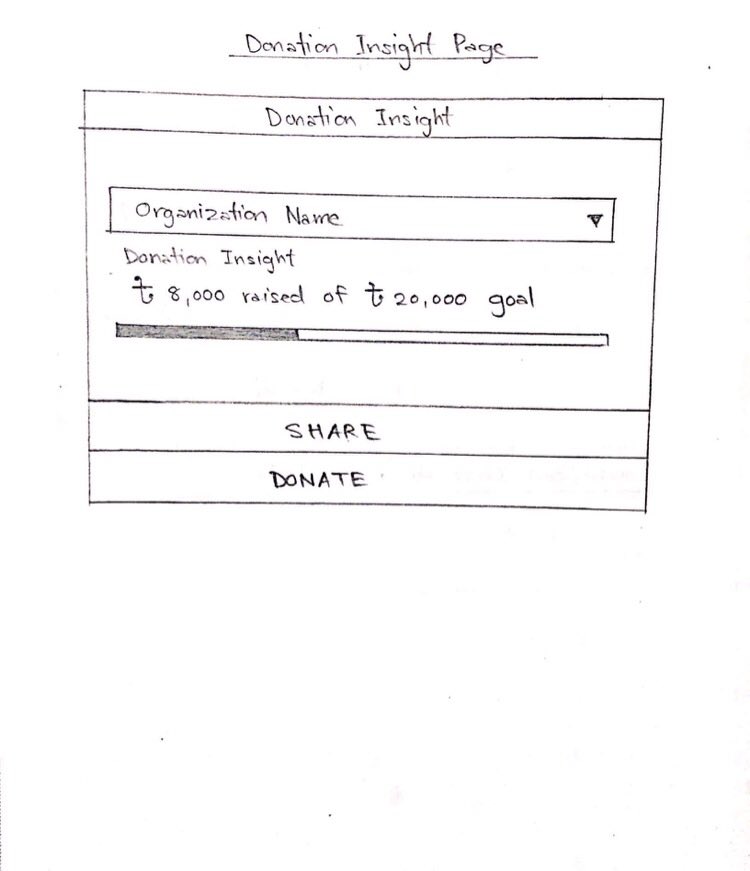 Donation Insight Page
Donation Insight
Organization Name
Donation Insight
৳ 8,000 raised of ৳ 20,000 goal
SHARE
DONATE